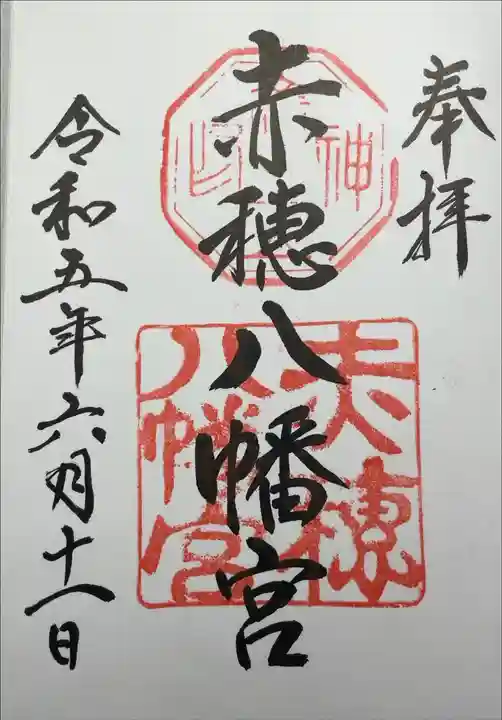 奉拝
赤穂八幡宮
令和五年六月十一日
赤穂
八幡宮
神